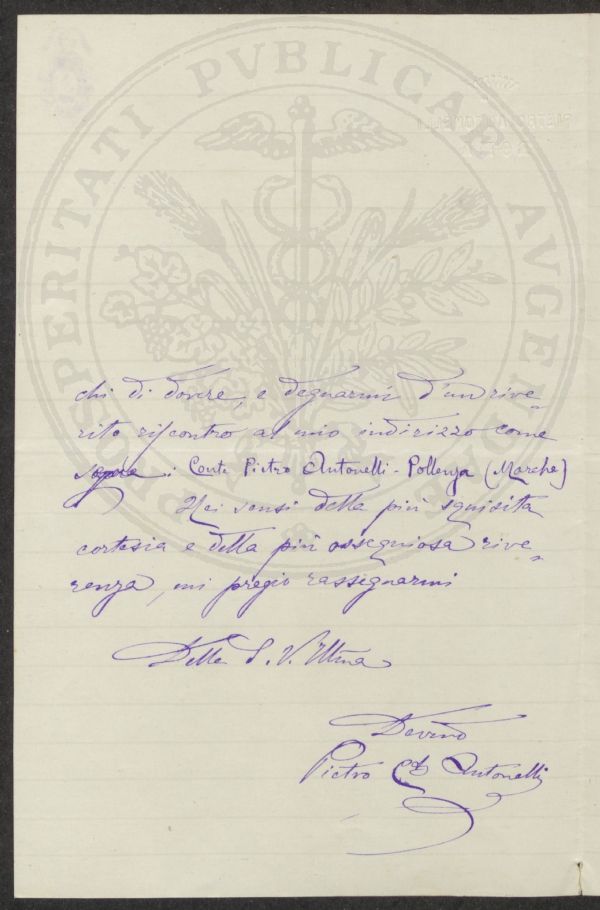 PROSPERITATI PVBLICAE AVGENDAE
chi di dovere, e degnarmi d'un rive-
rito riscontro al mio indirizzo come
sopra: Conte Pietro Antonelli - Pollenza (Marche)
Nei sensi della più squisita
cortesia e della più ossequiosa rive-
renza, mi pregio rassegnarmi
Della S. V. Illma
Devmo
Pietro Cte Antonelli